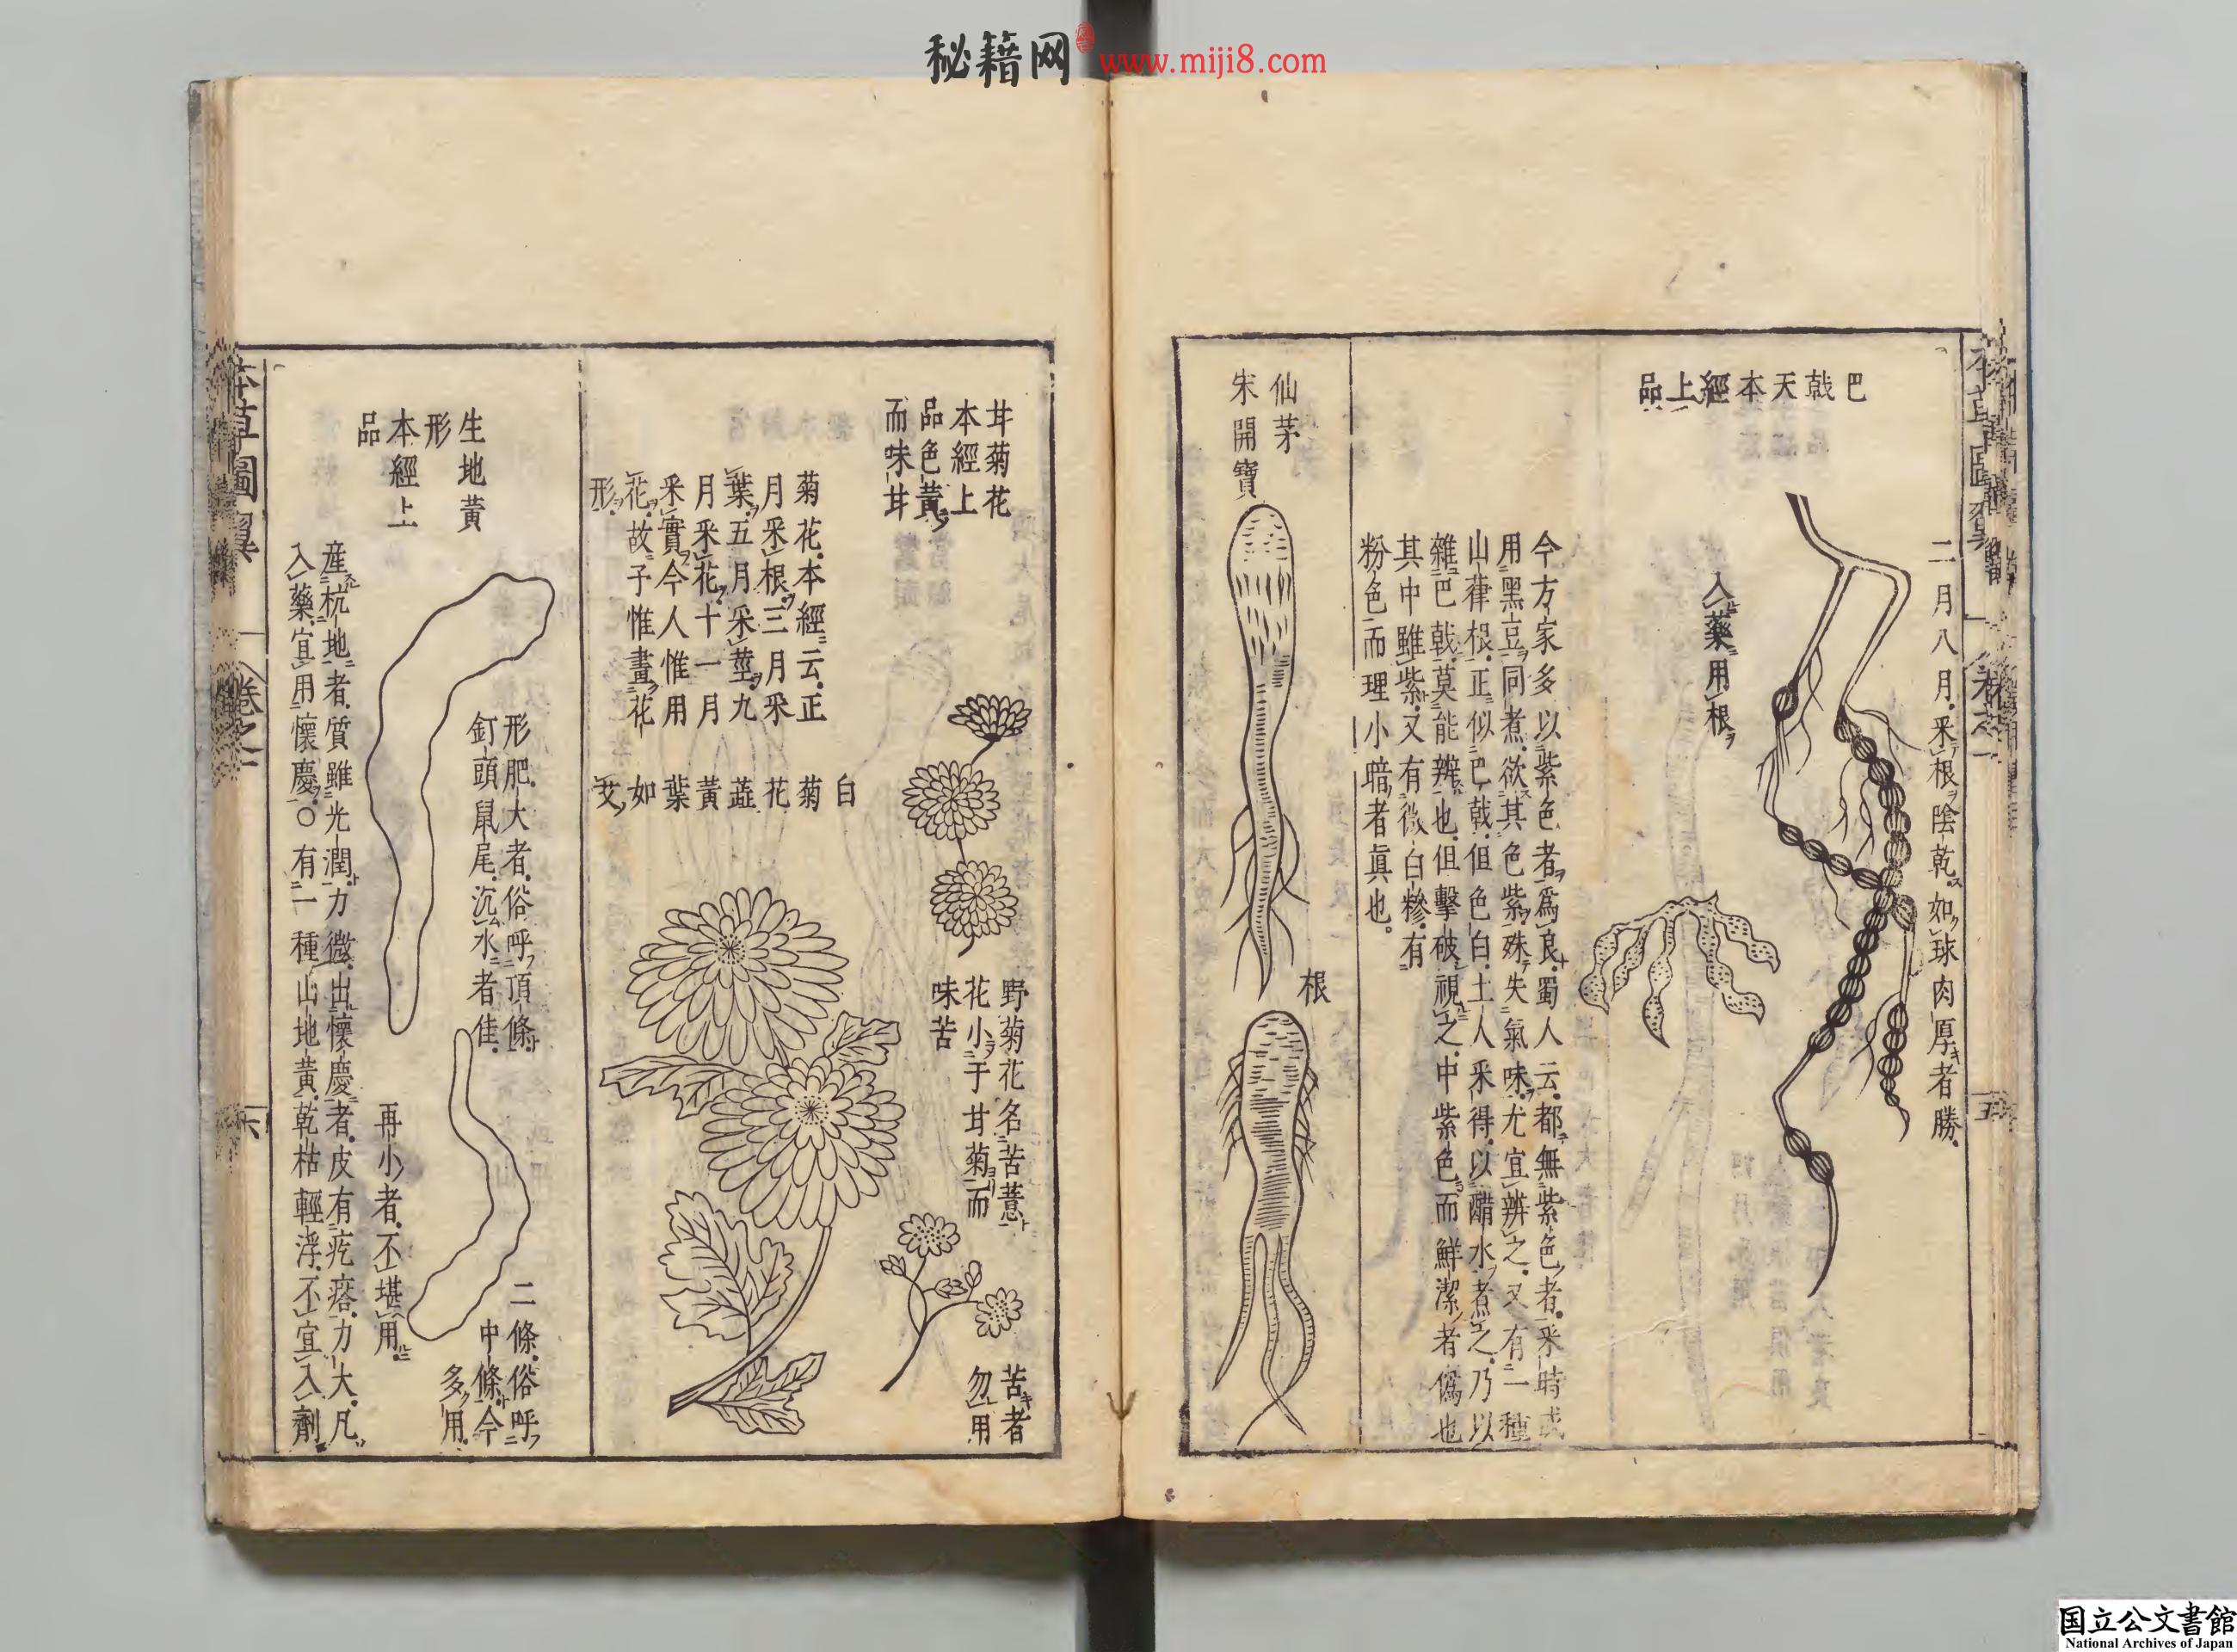 秘籍网 www.miji8.com
巴戟天本經上品
二月八月采根陰乾如球肉厚者勝
入藥用根
今方家多以紫色者爲良蜀人云都無紫色者采時或
用黑豆同煮欲其色紫殊失氣味尤宜辨之又有一種
山葎根正似巴戟但色白土人采得以醋水煮之乃以
雜巴戟莫能辨也但擊破視之中紫色而鮮潔者僞也
其中雖紫又有微白糝有
粉色而理小暗者眞也
仙茅
宋開寶
根
甘菊花
本經上
品色黃
而味甘
野菊花名苦薏
花小于甘菊而
味苦
苦者
勿用
菊花本經云正
月采根三月采
葉五月采莖九
月采花十一月
采實今人惟用
花故子惟畫花
形
白菊花蕋黃葉如艾
生地黃
形
本經上
品
形肥大者俗呼頂條
釘頭鼠尾沉水者佳
二條俗呼
中條今
多用
再小者不堪用
産杭地者質雖光潤力微出懷慶者皮有疙瘩力大凡
入藥宜用懷慶○有一種山地黃乾枯輕浮不宜入劑
本草圖翼
卷之一
六
五
国立公文書館
National Archives of Japan